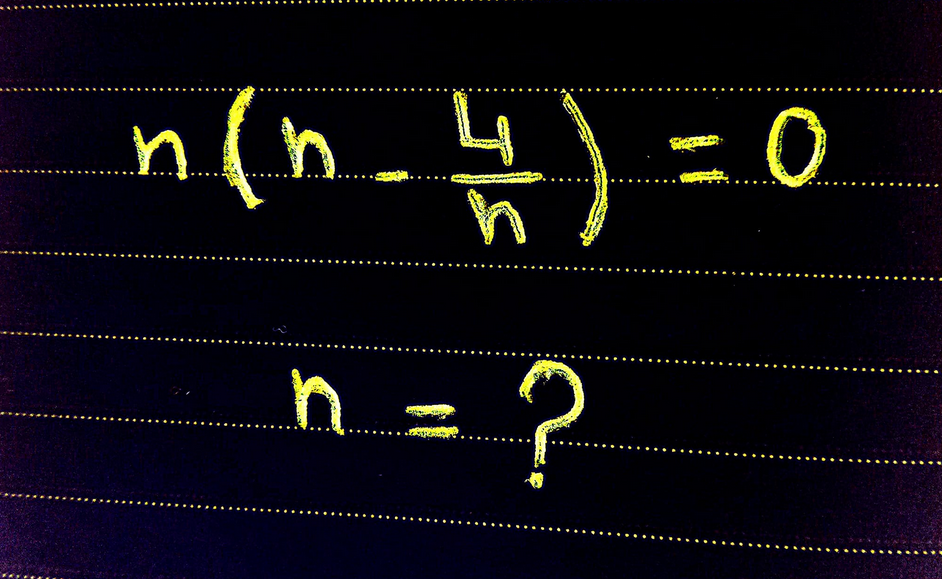 n(n - 4/n) = 0
n = ?